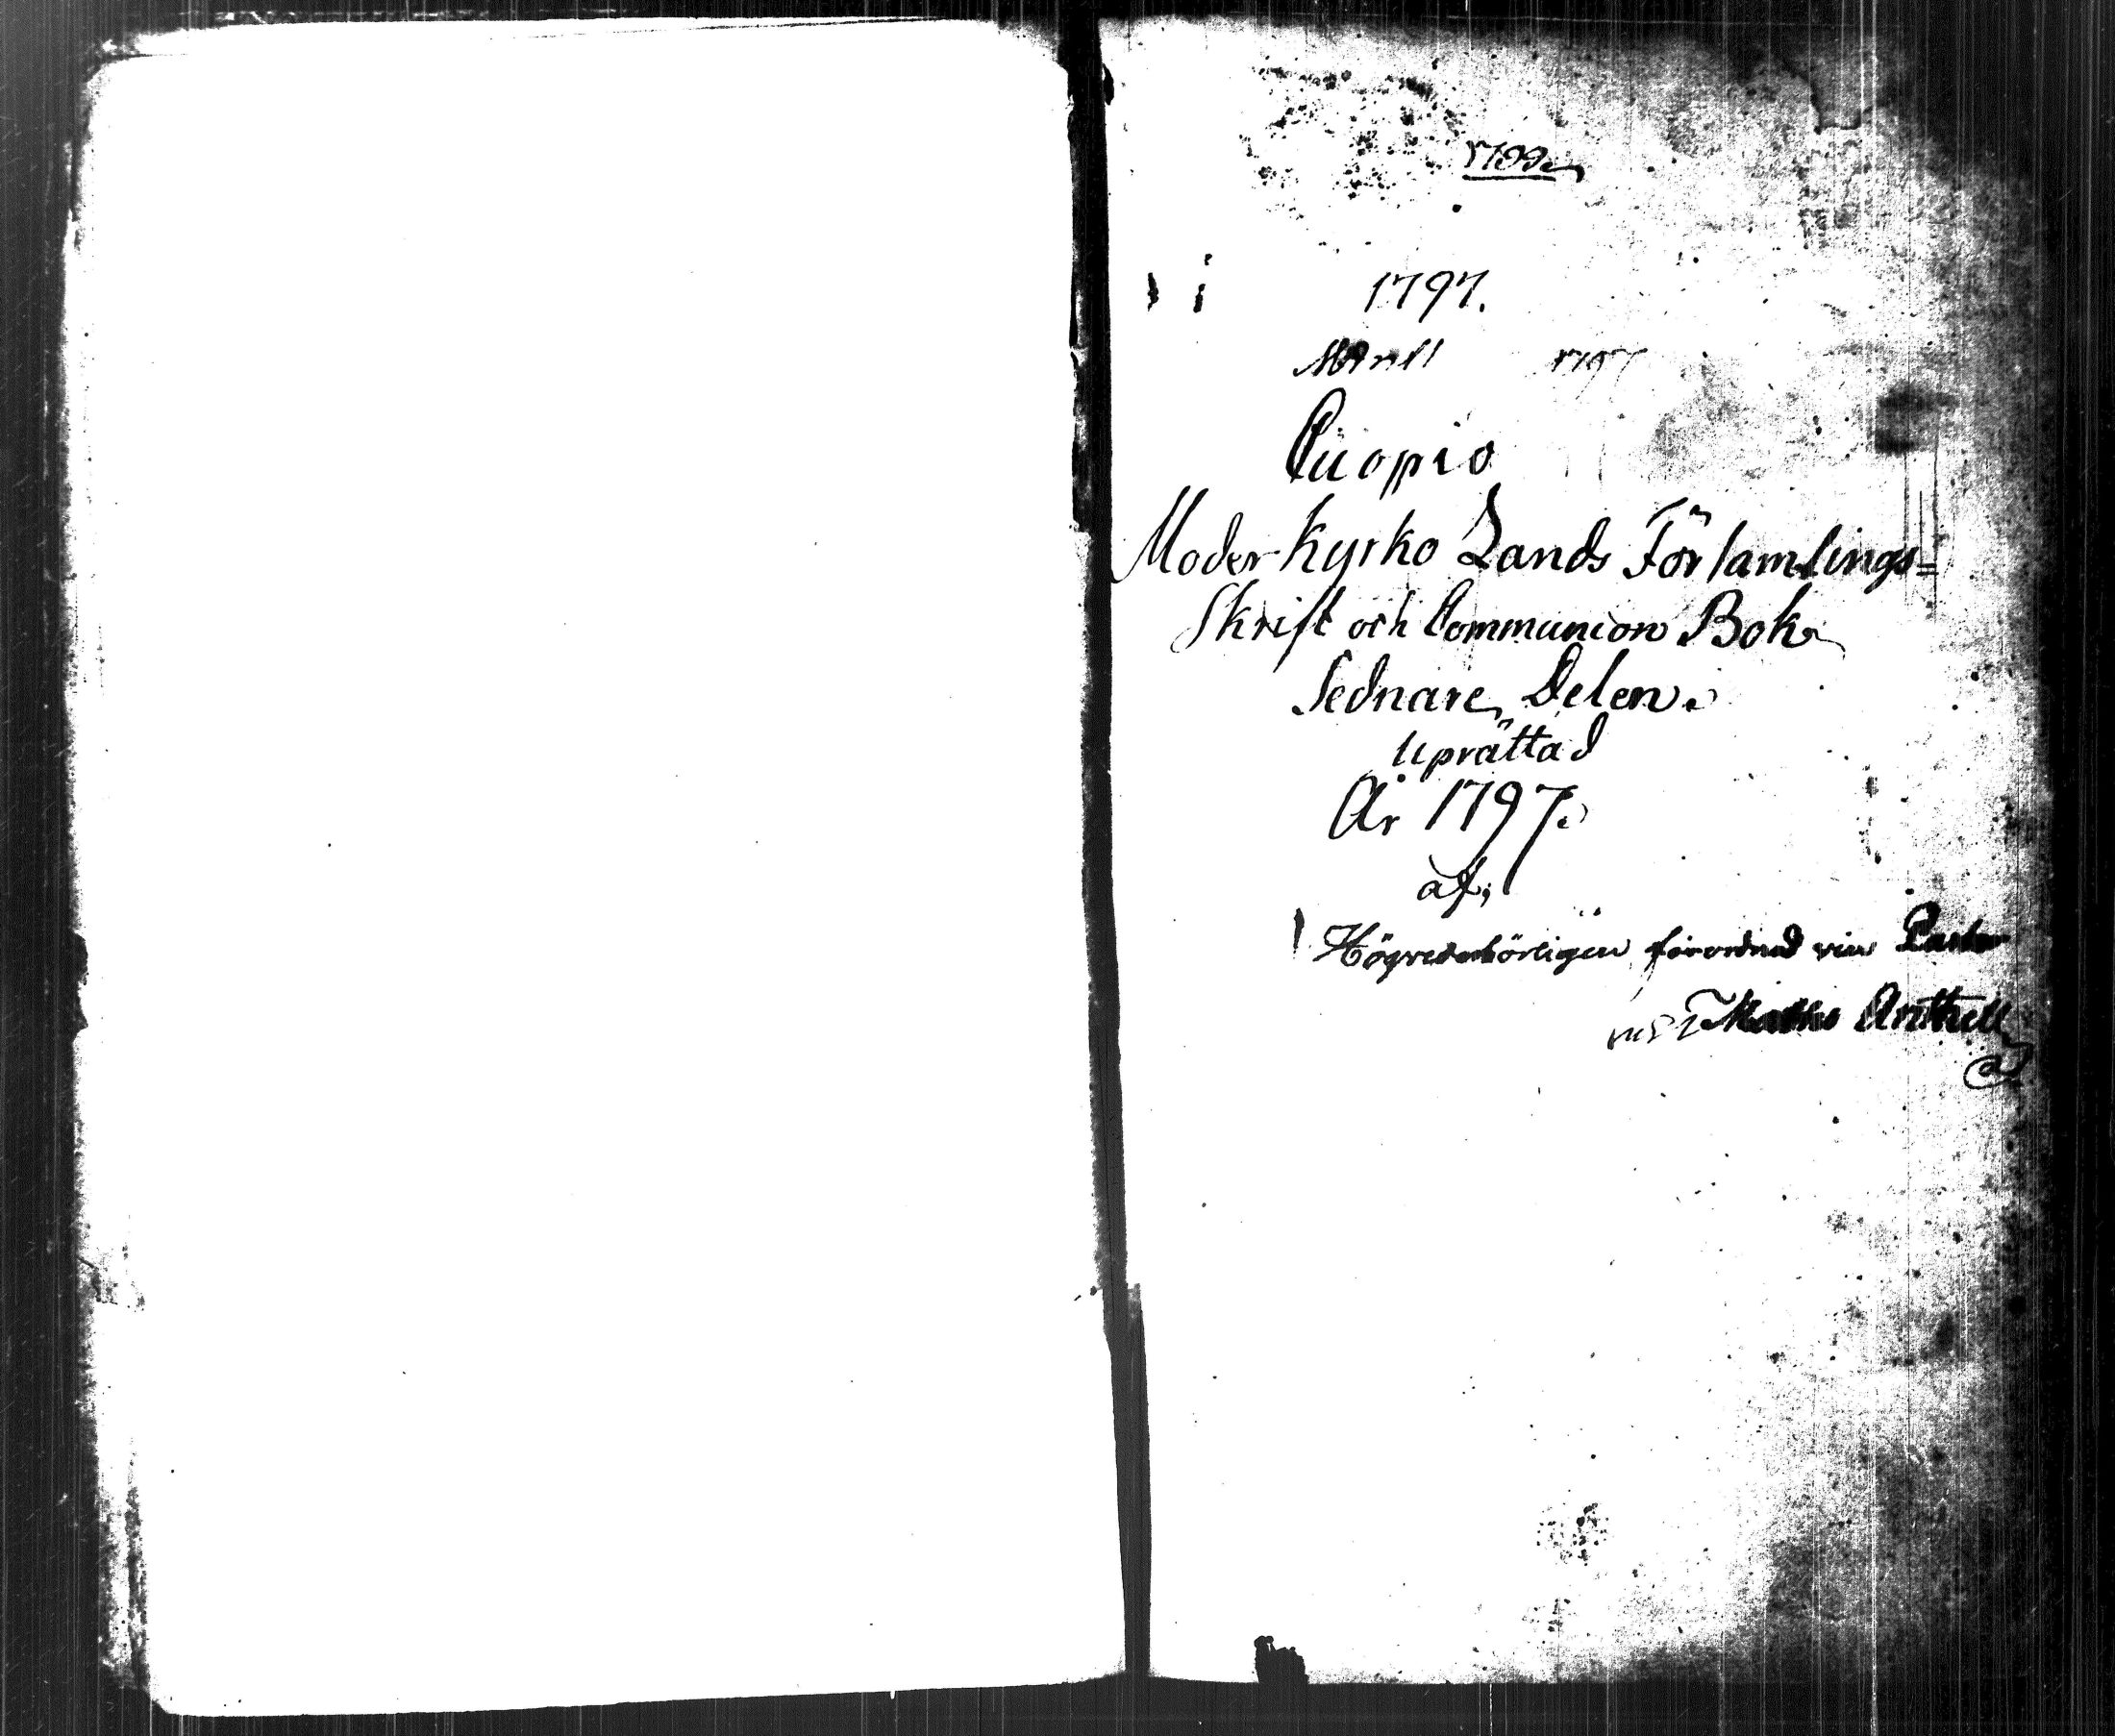 1797.
1797
Cuopio
Moder Kyrko Lands Församlings=
Skrift och Communion Bok
Sednare Delen.
Uprättad
År 1797.
af,
förordnad vice Pastor
Anthell